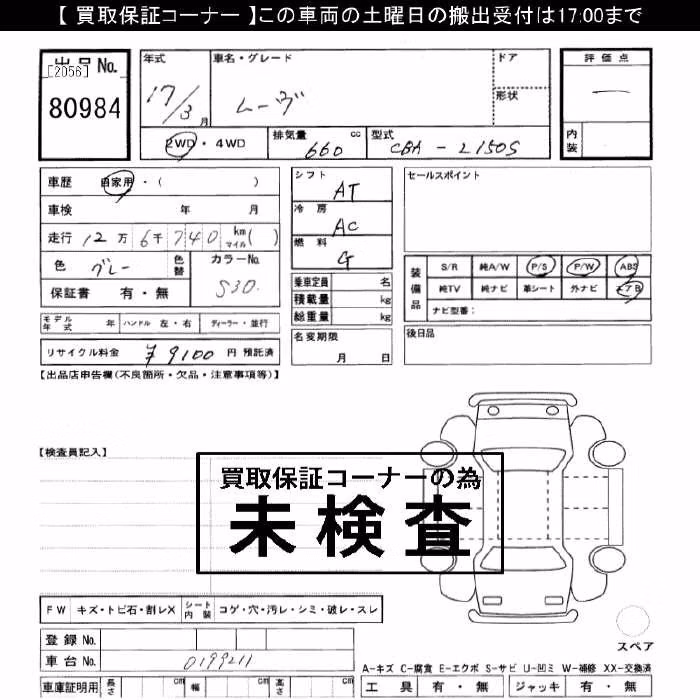 【 買取保証コーナー 】この車両の土曜日の搬出受付は17:00まで
出品No.
[2056]
80984
年式 車名・グレード ドア
17/3月 ムーヴ 形状
2WD・4WD 排気量 660 cc 型式 CBA-L150S
評価点
―
内装
車歴 自家用・( )
車検 年 月
走行 12万6千740 km マイル( )
色 グレー 色替 カラーNo. S30.
保証書 有・無
モデル年式 年 ハンドル 左・右 ディーラー・並行
リサイクル料金 ¥9100 円 預託済
シフト AT
冷房 AC
燃料 G
乗車定員 名
積載量 kg
総重量 kg
名変期限
月 日
セールスポイント
装備品 S/R 純A/W P/S P/W ABS
純TV 純ナビ 革シート 外ナビ エアB
ナビ型番:
後日品
【出品店申告欄(不良箇所・欠品・注意事項等)】
【検査員記入】
買取保証コーナーの為
未検査
FW キズ・トビ石・割レX シート内装 コゲ・穴・汚レ・シミ・破レ・スレ
登録No.
車台No. 0199211
車庫証明用 長さ cm 幅 cm 高さ cm
スペア
A-キズ C-腐食 E-エクボ S-サビ U-凹ミ W-補修 XX-交換済
工具 有・無 ジャッキ 有・無